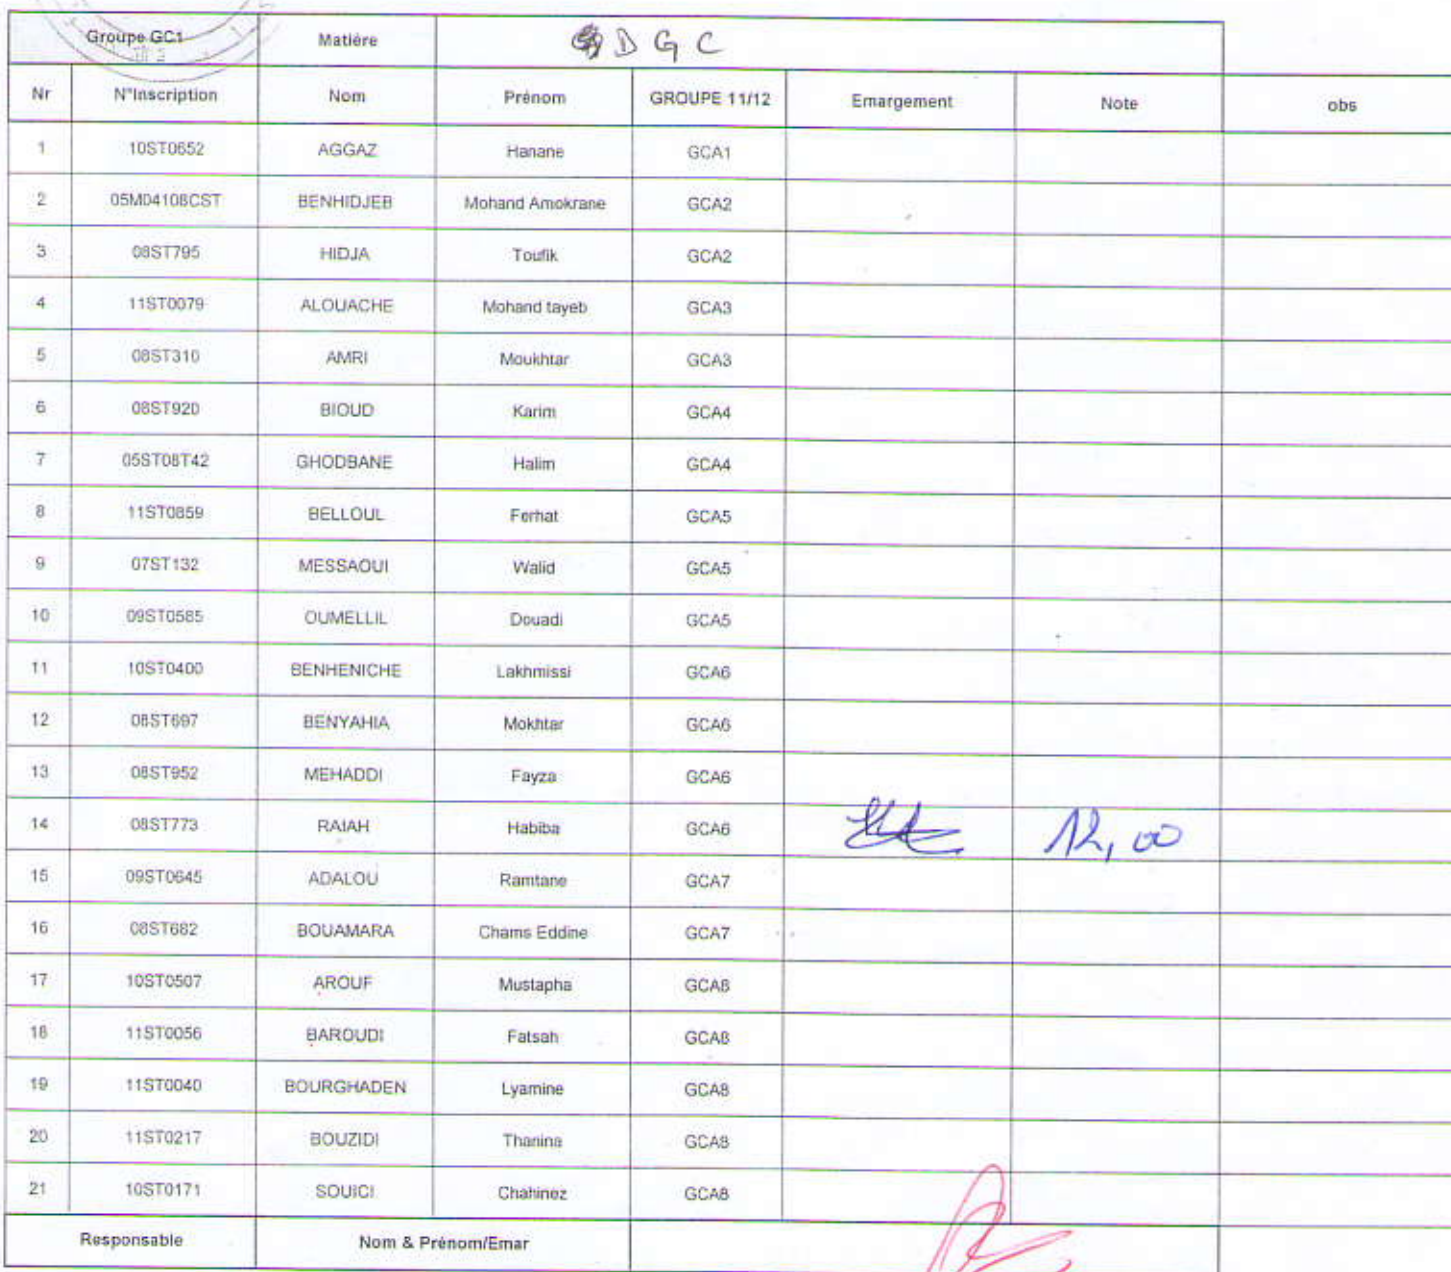 Groupe GC1 Matière D G C
Nr N°Inscription Nom Prénom GROUPE 11/12 Emargement Note obs
1 10ST0652 AGGAZ Hanane GCA1
2 05M04108CST BENHIDJEB Mohand Amokrane GCA2
3 08ST795 HIDJA Toufik GCA2
4 11ST0079 ALOUACHE Mohand tayeb GCA3
5 08ST310 AMRI Moukhtar GCA3
6 08ST920 BIOUD Karim GCA4
7 05ST08T42 GHODBANE Halim GCA4
8 11ST0859 BELLOUL Ferhat GCA5
9 07ST132 MESSAOUI Walid GCA5
10 09ST0585 OUMELLIL Douadi GCA5
11 10ST0400 BENHENICHE Lakhmissi GCA6
12 08ST697 BENYAHIA Mokhtar GCA6
13 08ST952 MEHADDI Fayza GCA6
14 08ST773 RAIAH Habiba GCA6 12,00
15 09ST0645 ADALOU Ramtane GCA7
16 08ST682 BOUAMARA Chams Eddine GCA7
17 10ST0507 AROUF Mustapha GCA8
18 11ST0056 BAROUDI Fatsah GCA8
19 11ST0040 BOURGHADEN Lyamine GCA8
20 11ST0217 BOUZIDI Thanina GCA8
21 10ST0171 SOUICI Chahinez GCA8
Responsable Nom & Prénom/Emar